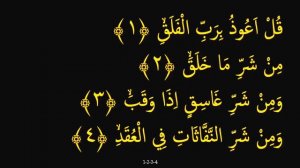 قُلْ اَعُوذُ بِرَبِّ الْفَلَقِۙ ﴿١﴾
مِنْ شَرِّ مَا خَلَقَۙ ﴿٢﴾
وَمِنْ شَرِّ غَاسِقٍ اِذَا وَقَبَۙ ﴿٣﴾
وَمِنْ شَرِّ النَّفَّاثَاتِ فِي الْعُقَدِۙ ﴿٤﴾
1-2-3-4